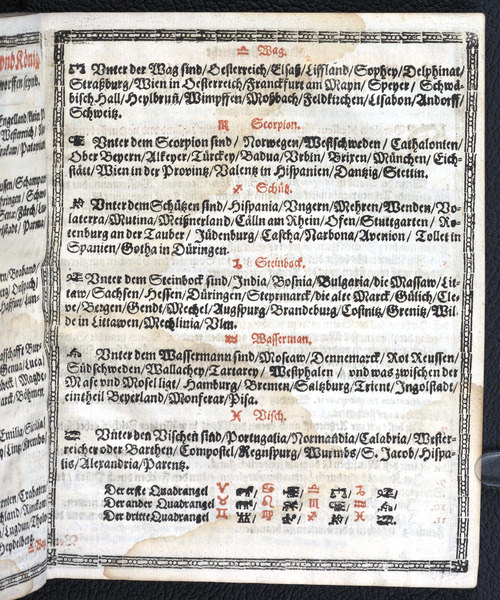 ond König
worffen seynd.
♎ Wag.
Vnter der Wag sind/Oesterreich/Elsaß/Liffland/Sophey/Delphinat/
Straßburg/Wien in Oesterreich/Franckfurt am Mayn/Speyer/Schwä-
bisch Hall/Heylbruñ/Wimpffen/Moßbach/Feldkirchen/Lisabon/Andorff/
Schweitz.
♏ Scorpion.
Vnter dem Scorpion sind/Norwegen/Westschweden/Cathalonien/
Ober Beyern/Alkeyer/Türckey/Badua/Vrbin/Brixen/München/Eich-
stätt/Wien in der Provintz/Valentz in Hispanien/Dantzig/Stettin.
♐ Schütz.
Vnter dem Schützen sind/Hispania/Vngern/Mehren/Wenden/Vo-
laterra/Mutina/Meißnerland/Cälln am Rhein/Ofen/Stuttgarten/Ro-
tenburg an der Tauber/Jüdenburg/Cascha/Narbona/Avenion/Tollet in
Spanien/Gotha in Düringen.
♑ Steinbock.
Vnter dem Steinbock sind/India/Bosnia/Bulgaria/die Massaw/Lit-
taw/Sachsen/Hessen/Düringen/Steyrmarck/die alte Marck/Gülich/Cle-
ve/Bergen/Gendt/Mechel/Augspurg/Brandeburg/Costnitz/Grenitz/Wil-
de in Littawen/Mechlinia/Vlm.
♒ Wasserman.
Vnter dem Wassermann sind/Moscaw/Dennemarck/Rot Reussen/
Südschweden/Wallachey/Tartarey/Westphalen/vnd was zwischen der
Mase vnd Mosel ligt/Hamburg/Bremen/Saltzburg/Trient/Ingolstadt/
ein theil Beyerland/Monferar/Pisa.
♓ Visch.
Vnter den Vischen sind/Portugalia/Normandia/Calabria/Wester-
reicher oder Barthen/Compostel/Regnspurg/Wurmbs/S. Jacob/Hispa-
lis/Alexandria/Parentz.
Der erste Quadrangel ♈ / ♋ / ♎ / ♑ /
Der ander Quadrangel ♉ / ♌ / ♏ / ♒ /
Der dritte Quadrangel ♊ / ♍ / ♐ / ♓ .